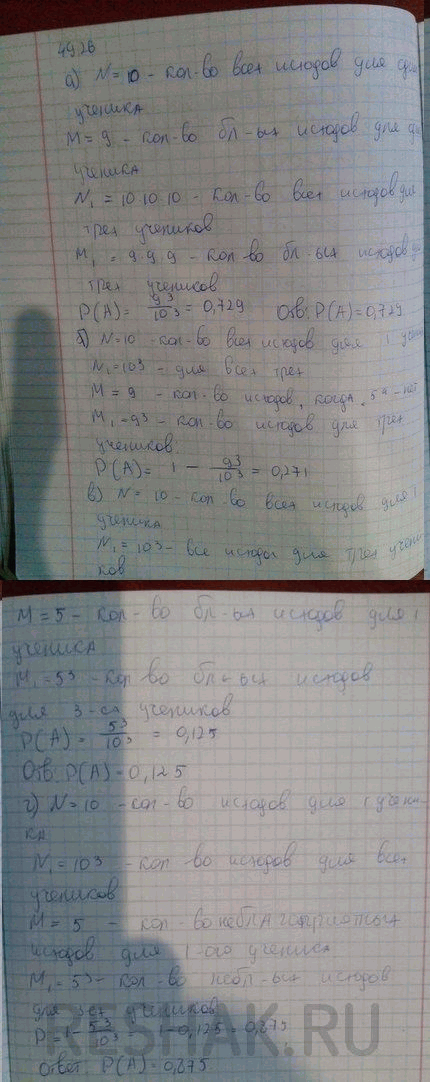 49.26
а) N = 10 - кол-во всех исходов для
ученика
M = 9 - кол-во бл-ых исходов для
ученика
N₁ = 10·10·10 - кол-во всех исходов для
трех учеников
M₁ = 9·9·9 - кол-во бл-ых исходов
трех учеников
P(A) = 9³/10³ = 0,729 Отв: P(A) = 0,729
б) N=10 - кол-во всех исходов для 1
N₁=10³ - для всех трех
M = 9 - кол-во исходов, когда "5" - нет
M₁ = 9³ - кол-во исходов для трех
учеников.
P(A) = 1 - 9³/10³ = 0,271
в) N = 10 - кол-во всех исходов для 1
ученика
N₁ = 10³ - все исходы для трех учени-
ков
M = 5 - кол-во бл-ых исходов для 1
ученика
M₁ = 5³ - кол-во бл-ых исходов
для 3-ех учеников
P(A) = 5³/10³ = 0,125
Отв: P(A) = 0,125
г) N = 10 - кол-во исходов для 1 учени-
ка
N₁ = 10³ - кол-во исходов для всех
учеников
M = 5 - кол-во неблагоприятных
исходов для 1-ого ученика
M₁ = 5³ - кол-во небл-ых исходов
для 3ех учеников
P = 1 - 5³/10³ = 1 - 0,125 = 0,875
Ответ: P(A) = 0,875
RESHAK.RU